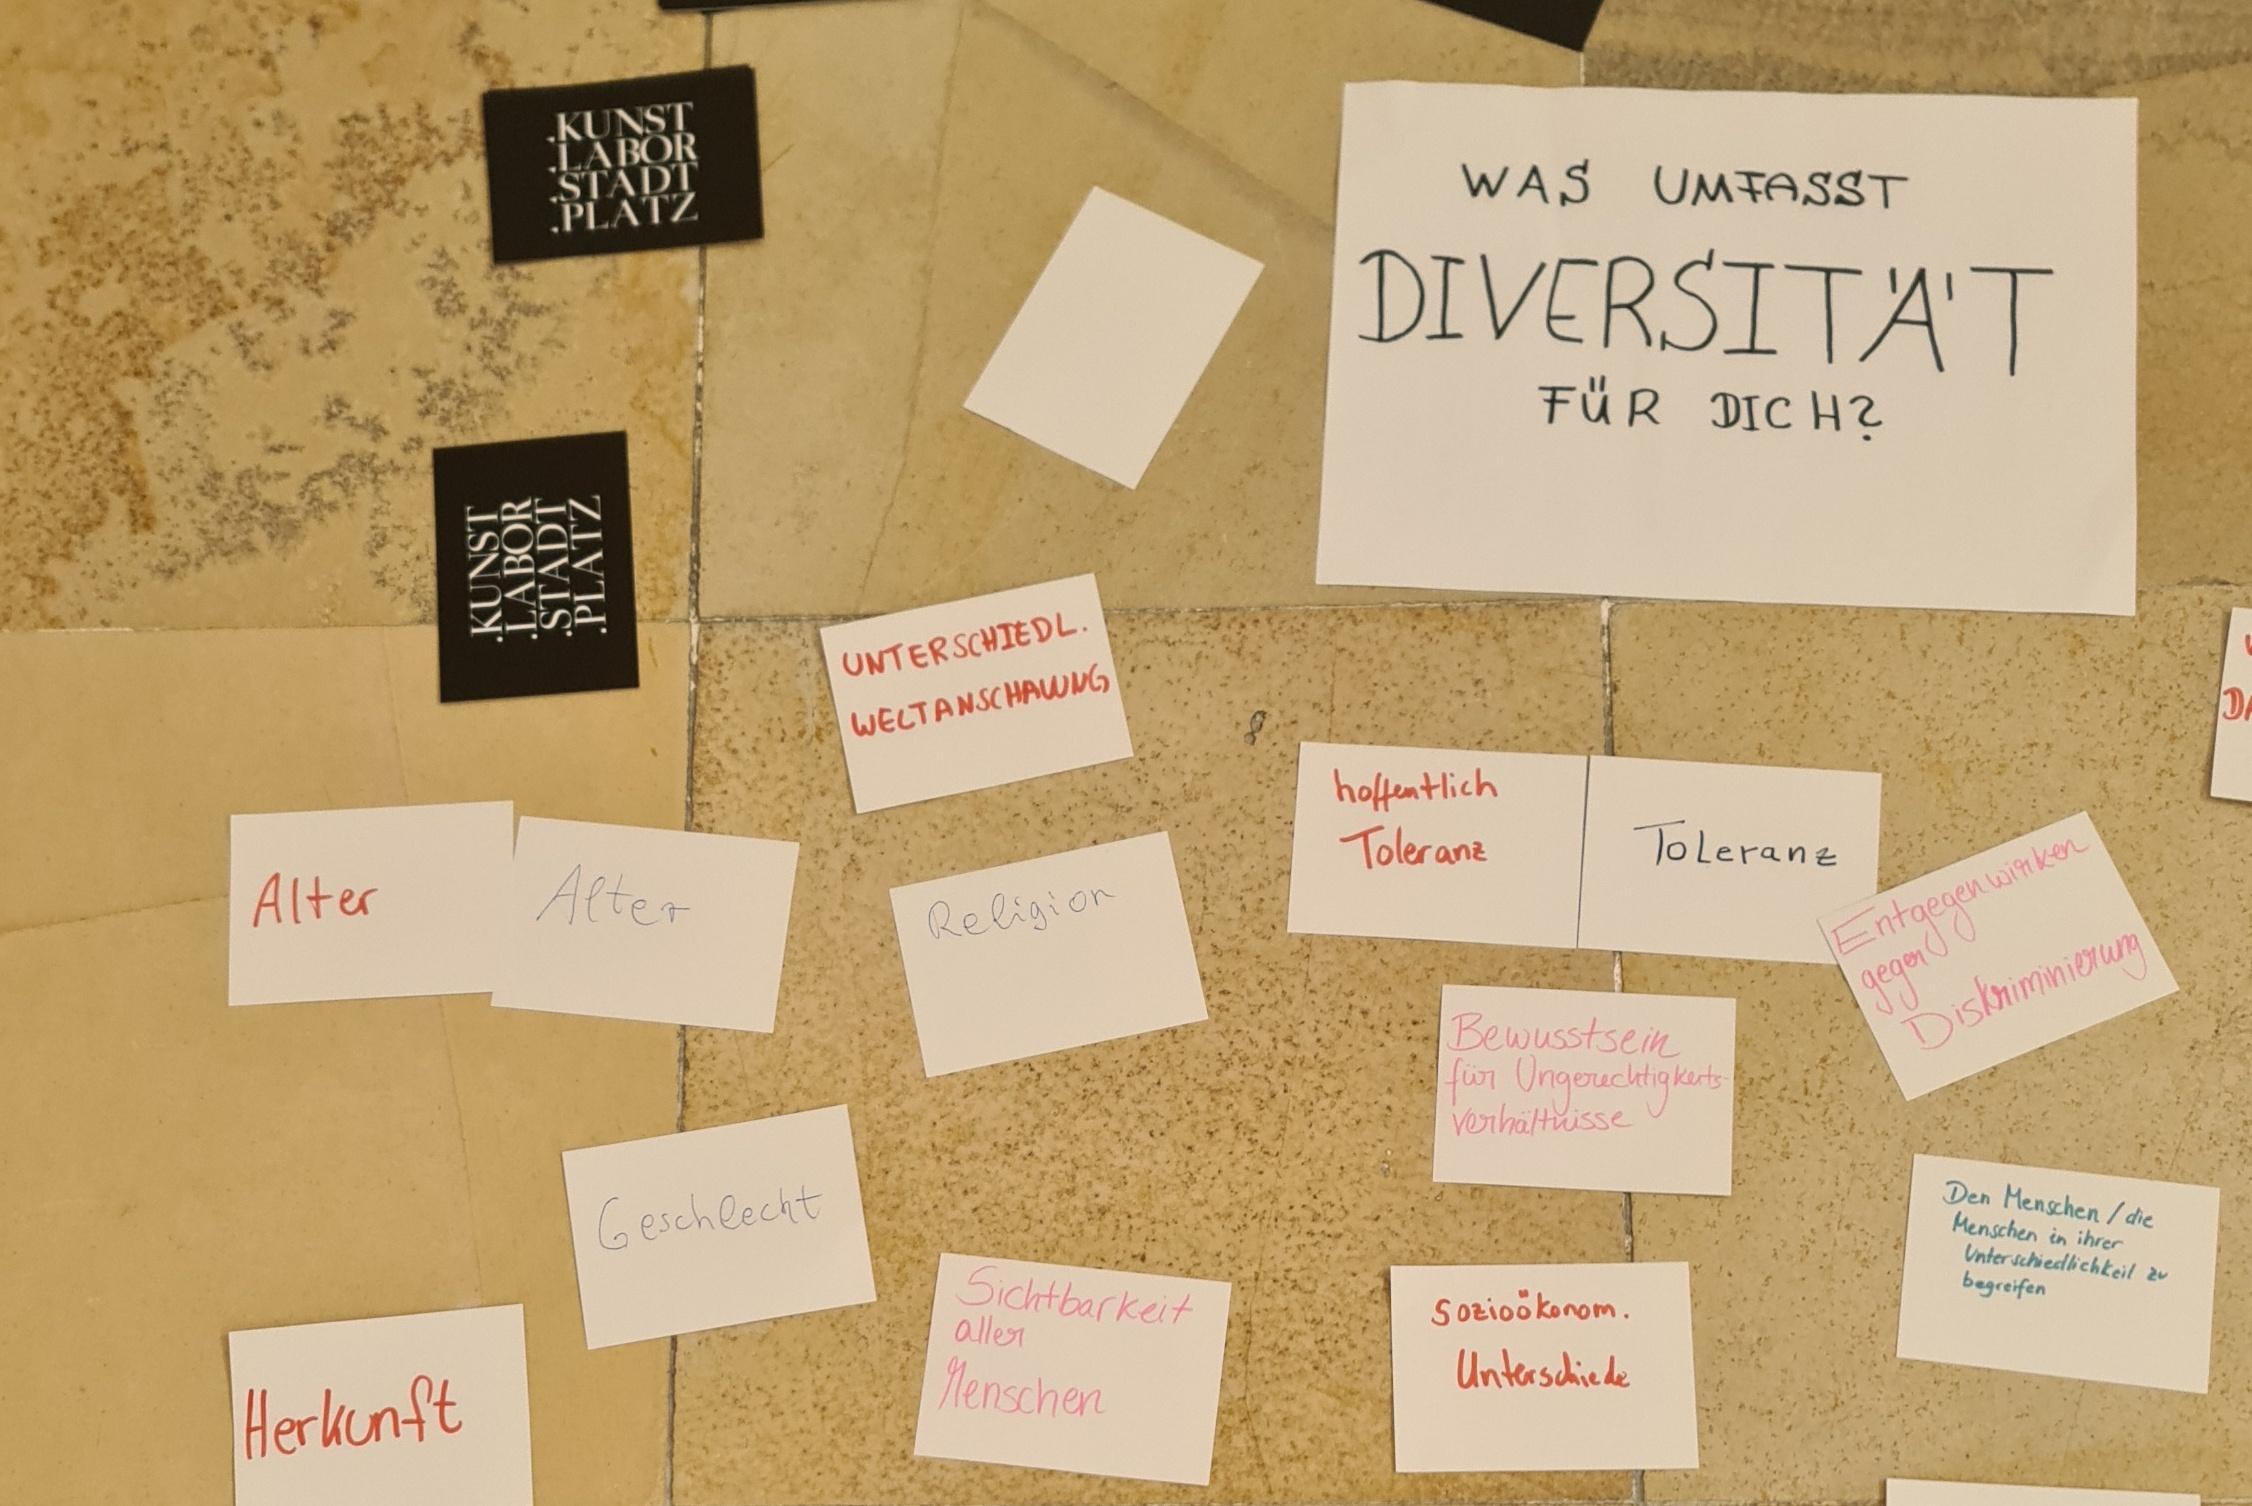 .KUNST
.LABOR
.STADT
.PLATZ
WAS UMFASST
DIVERSITÄT
FÜR DICH?
.KUNST
.LABOR
.STADT
.PLATZ
UNTERSCHIEDL.
WELTANSCHAUUNG
hoffentlich
Toleranz
Toleranz
Alter
Alter
Religion
Entgegenwirken
gegen
Diskriminierung
Bewusstsein
für Ungerechtigkeits-
verhältnisse
Geschlecht
Den Menschen / die
Menschen in ihrer
Unterschiedlichkeit zu
begreifen
Sichtbarkeit
aller
Menschen
sozioökonom.
Unterschiede
Herkunft